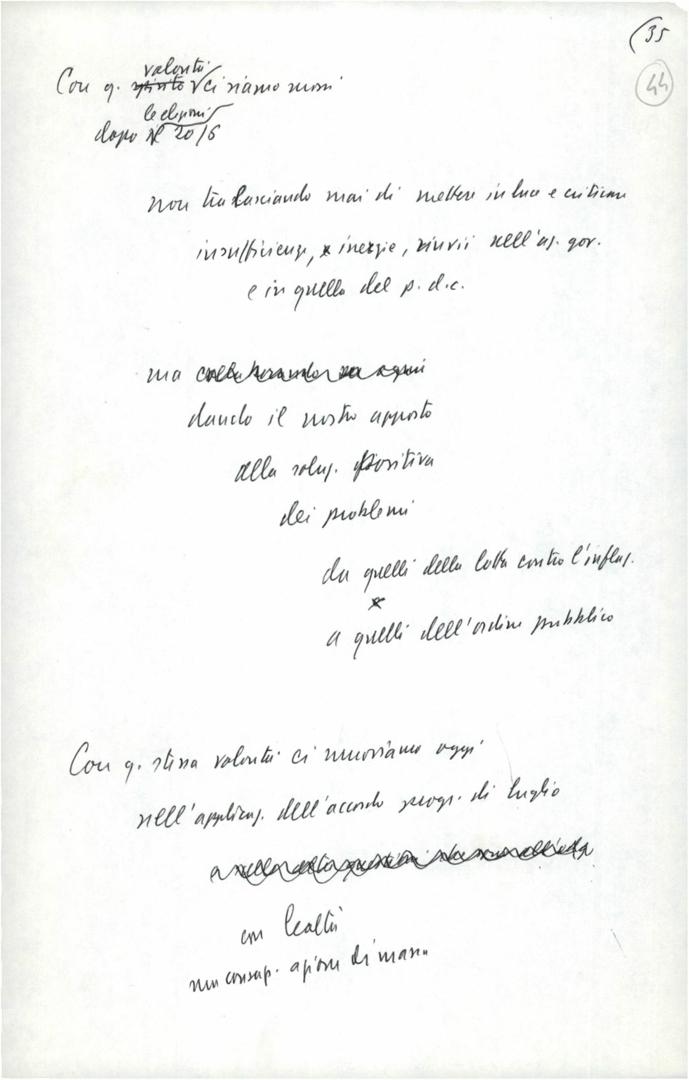 (35
44
volontà
Con q. spirito ci siamo mossi
le elezioni
dopo il 20/6
non tralasciando mai di mettere in luce e criticare
insufficienze, inerzie, rinvii nell'az. gov.
e in quella del p. d.c.
ma collaborando
dando il nostro apporto
alla soluz. positiva
dei problemi
da quelli della lotta contro l'inflaz.
a quelli dell'ordine pubblico
Con q. stessa volontà ci muoviamo oggi
nell'applicaz. dell'accordo progr. di luglio
con lealtà
con consap. azione di massa